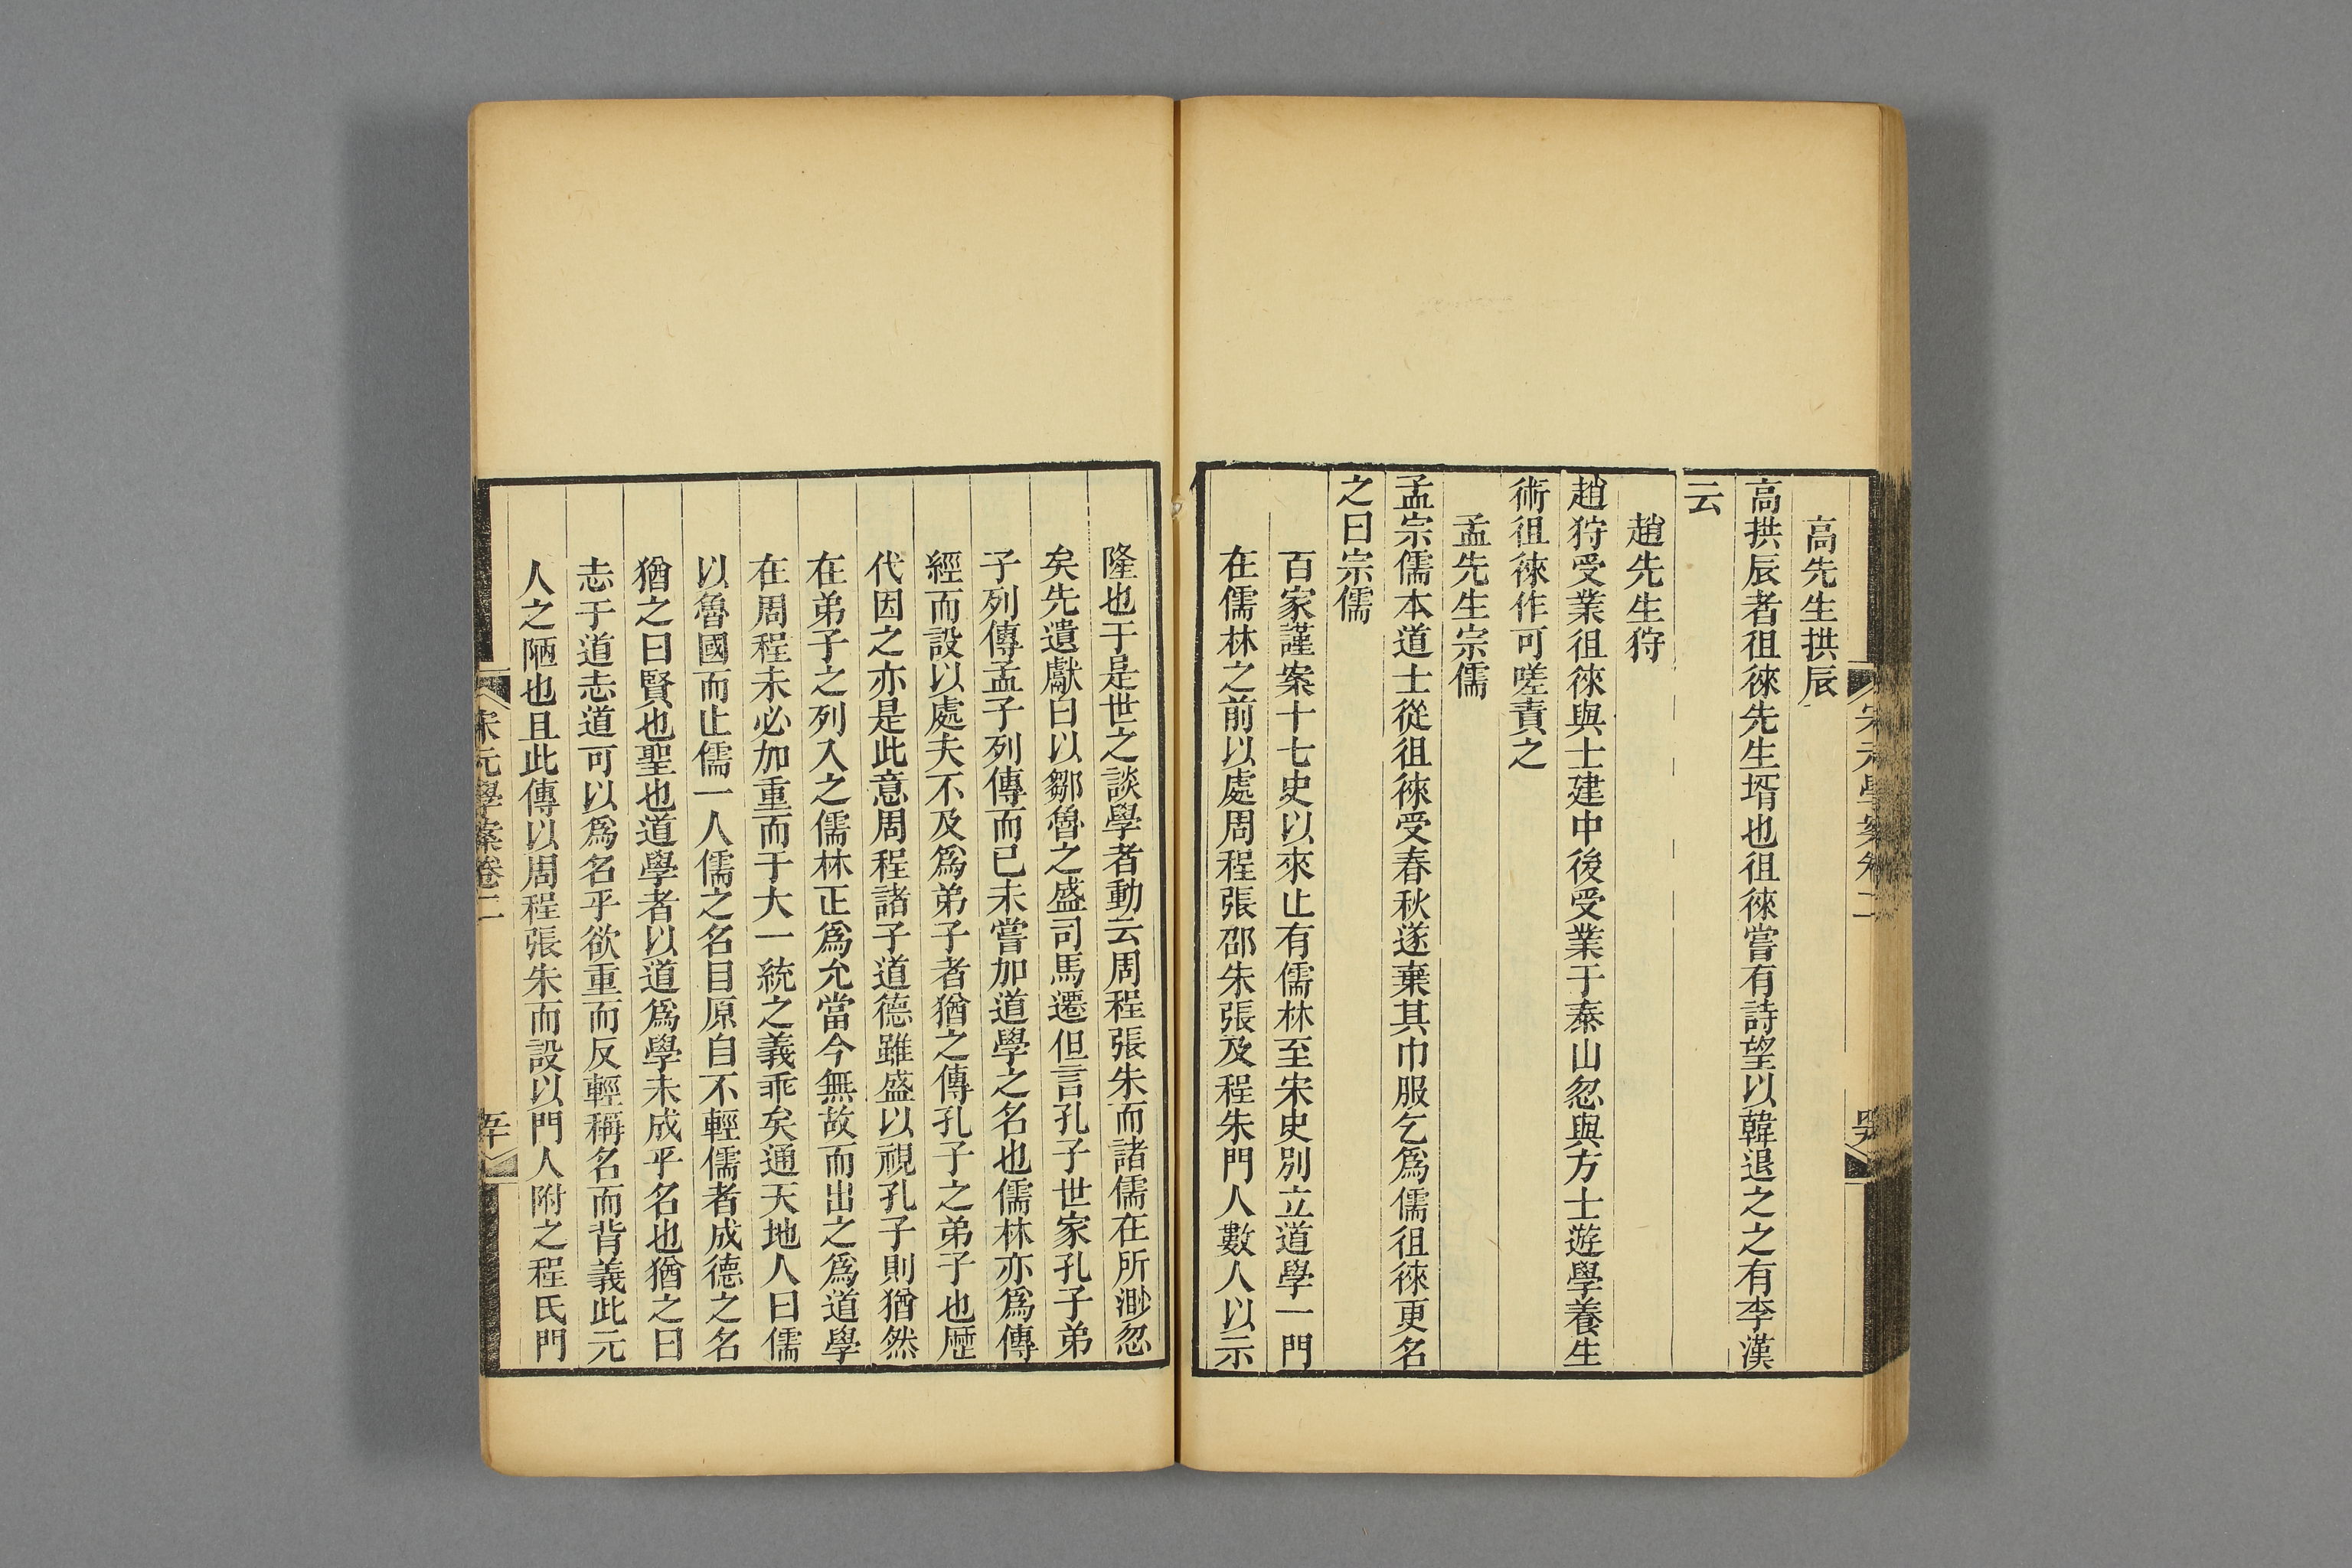 高先生拱辰
高拱辰者徂徠先生壻也徂徠嘗有詩望以韓退之之有李漢
云
趙先生狩
趙狩受業徂徠與士建中後受業于泰山忽與方士遊學養生
術徂徠作可嗟責之
孟先生宗儒
孟宗儒本道士從徂徠受春秋遂棄其巾服乞爲儒徂徠更名
之曰宗儒
百家謹案十七史以來止有儒林至宋史別立道學一門
在儒林之前以處周程張邵朱張及程朱門人數人以示
隆也于是世之談學者動云周程張朱而諸儒在所渺忽
矣先遺獻曰以鄒魯之盛司馬遷但言孔子世家孔子弟
子列傳孟子列傳而已未嘗加道學之名也儒林亦爲傳
經而設以處夫不及爲弟子者猶之傳孔子之弟子也歷
代因之亦是此意周程諸子道德雖盛以視孔子則猶然
在弟子之列入之儒林正爲允當今無故而出之爲道學
在周程未必加重而于大一統之義乖矣通天地人曰儒
以魯國而止儒一人儒之名目原自不輕儒者成德之名
猶之曰賢也聖也道學者以道爲學未成乎名也猶之曰
志于道志道可以爲名乎欲重而反輕稱名而背義此元
人之陋也且此傳以周程張朱而設以門人附之程氏門
宋元學案卷二
宋元學案卷二